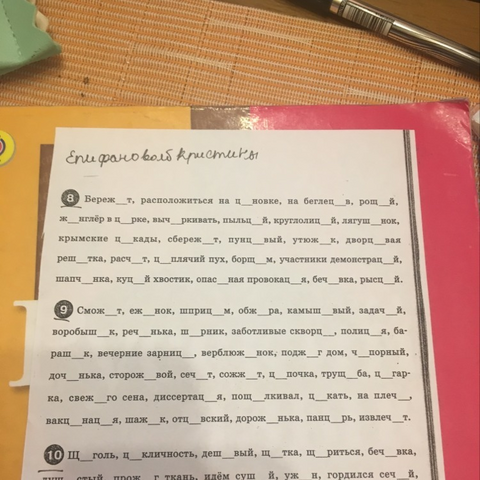 Епифановой Кристины
8 Береж__т, расположиться на ц__новке, на беглец__в, рощ__й,
ж__нглёр в ц__рке, выч__ркивать, пыльц__й, круглолиц__й, лягуш__нок,
крымские ц__кады, сбереж__т, пунц__вый, утюж__к, дворц__вая
реш__тка, расч__т, ц__плячий пух, борщ__м, участники демонстрац__й,
шапч__нка, куц__й хвостик, опас__ная провокац__я, беч__вка, рысц__й.
9 Смож__т, еж__нок, шприц__м, обж__ра, камыш__вый, задач__й,
воробыш__к, реч__нька, ш__рник, заботливые скворц__, полиц__я, ба-
раш__к, вечерние зарниц__, верблюж__нок, подж__г дом, ч__порный,
доч__нька, сторож__вой, сеч__т, сожж__т, ц__почка, трущ__ба, ц__гар-
ка, свеж__го сена, диссертац__я, пощ__лкивал, ц__кать, на плеч__,
вакц__нац__я, шаж__к, отц__вский, дорож__нька, панц__рь, извлеч__т.
10 Щ__голь, ц__кличность, деш__вый, щ__тка, щ__риться, беч__вка,
душ__стый, прож__г ткань, идём суш__й, уж__н, гордился сеч__й,